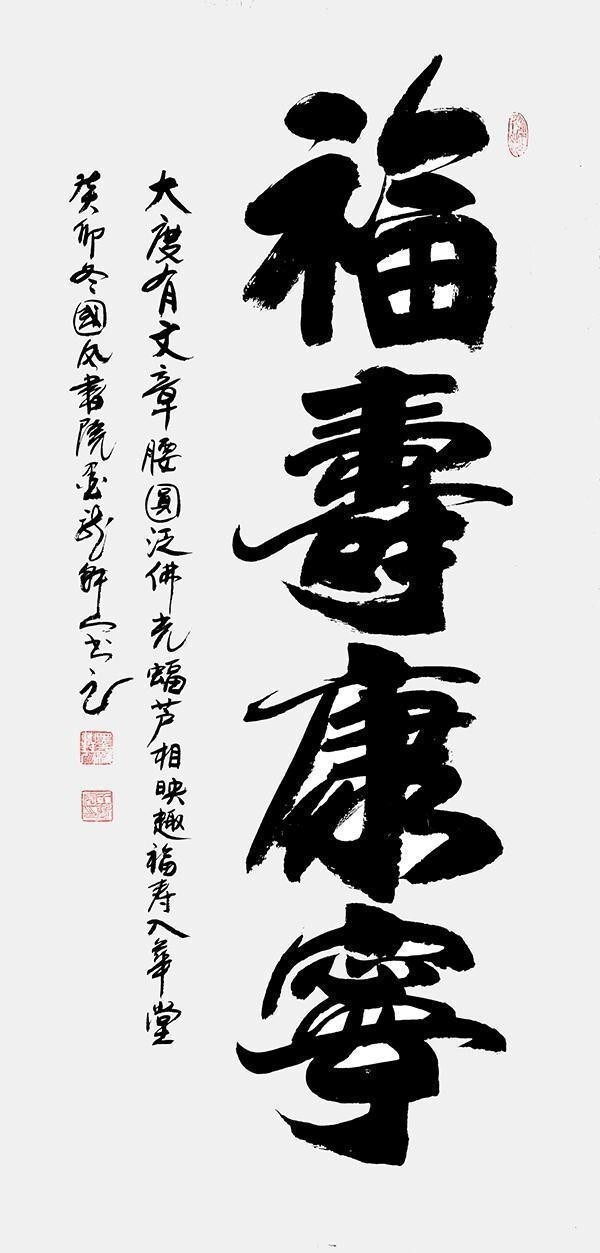 福壽康寧
大度有文章腰圓泛佛光蝠芦相映趣福寿入華堂
癸卯冬國风書院墨龍軒人书之